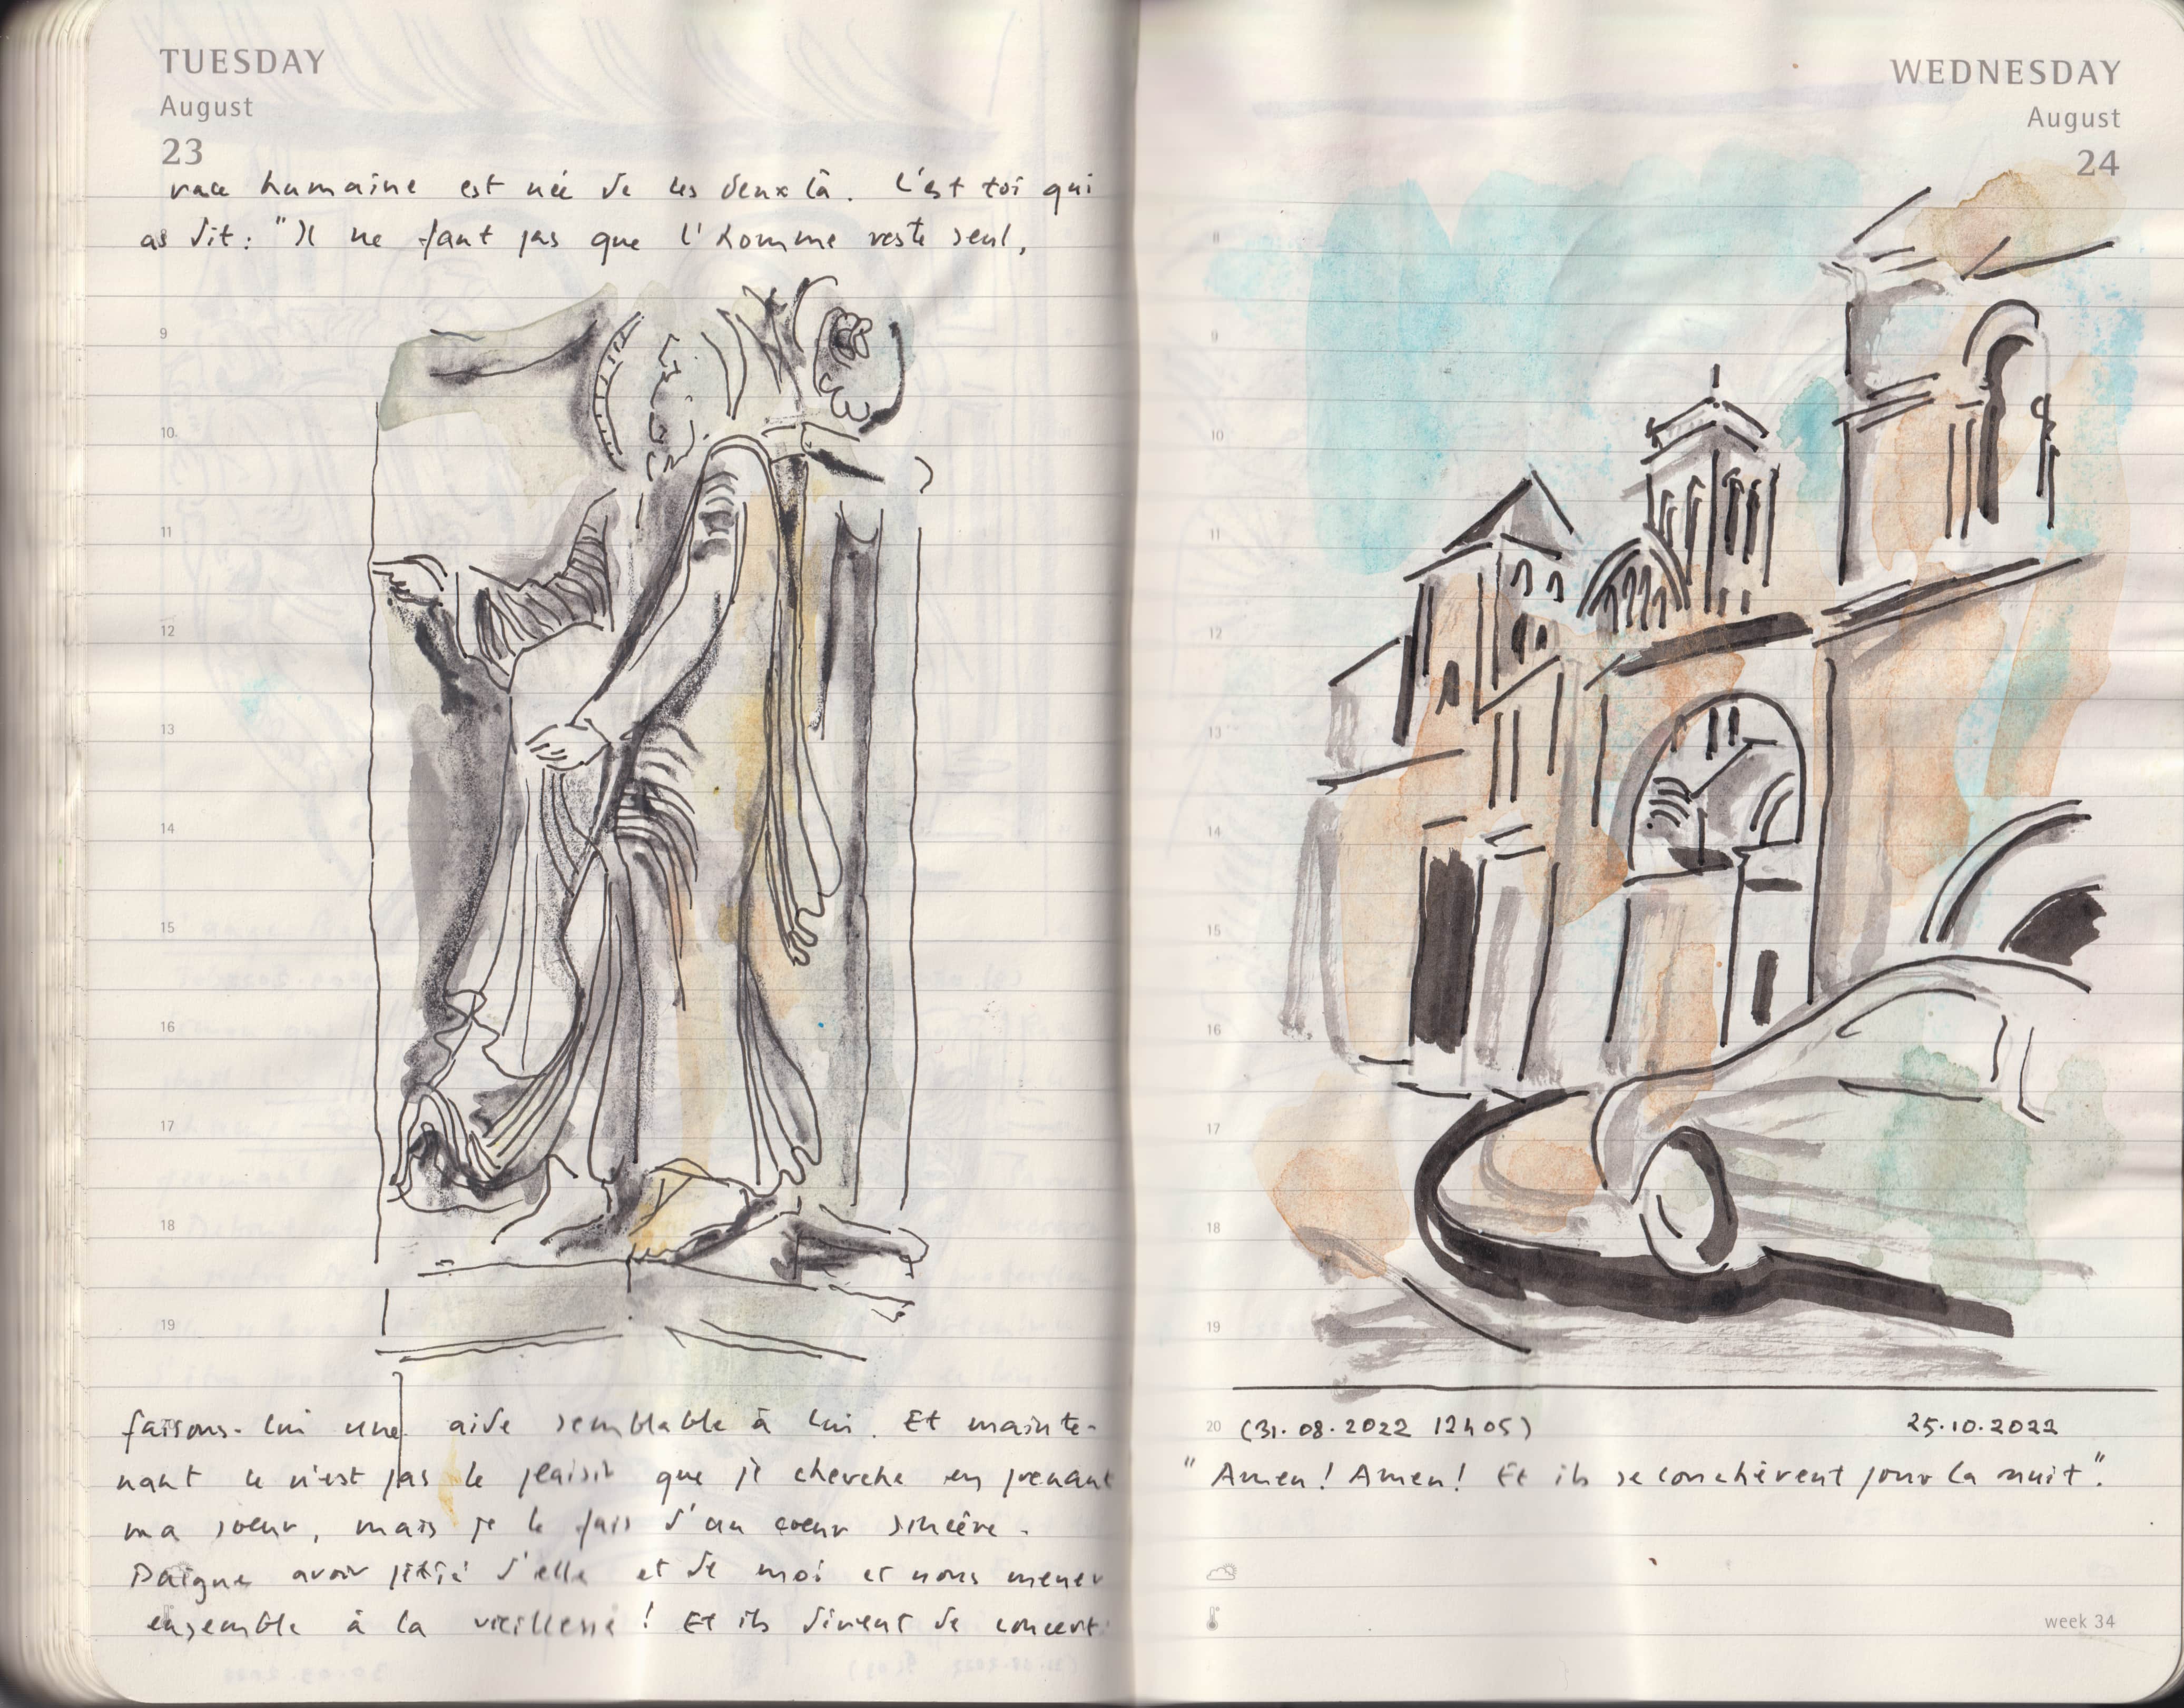 TUESDAY
August
23
race humaine est née de ces deux là. C'est toi qui
as dit: "Il ne faut pas que l'homme reste seul,
9
10
11
12
13
14
15
16
17
18
19
faisons-lui une aide semblable à lui. Et mainte-
nant ce n'est pas le plaisir que je cherche en prenant
ma soeur, mais je le fais d'un coeur sincère.
Daigne avoir pitié d'elle et de moi et nous mener
ensemble à la vieillesse! Et ils dirent de concert:
WEDNESDAY
August
24
8
9
10
11
12
13
14
15
16
17
18
19
20 (31.08.2022 12h05) 25.10.2022
"Amen! Amen! Et ils se couchèrent pour la nuit".
week 34